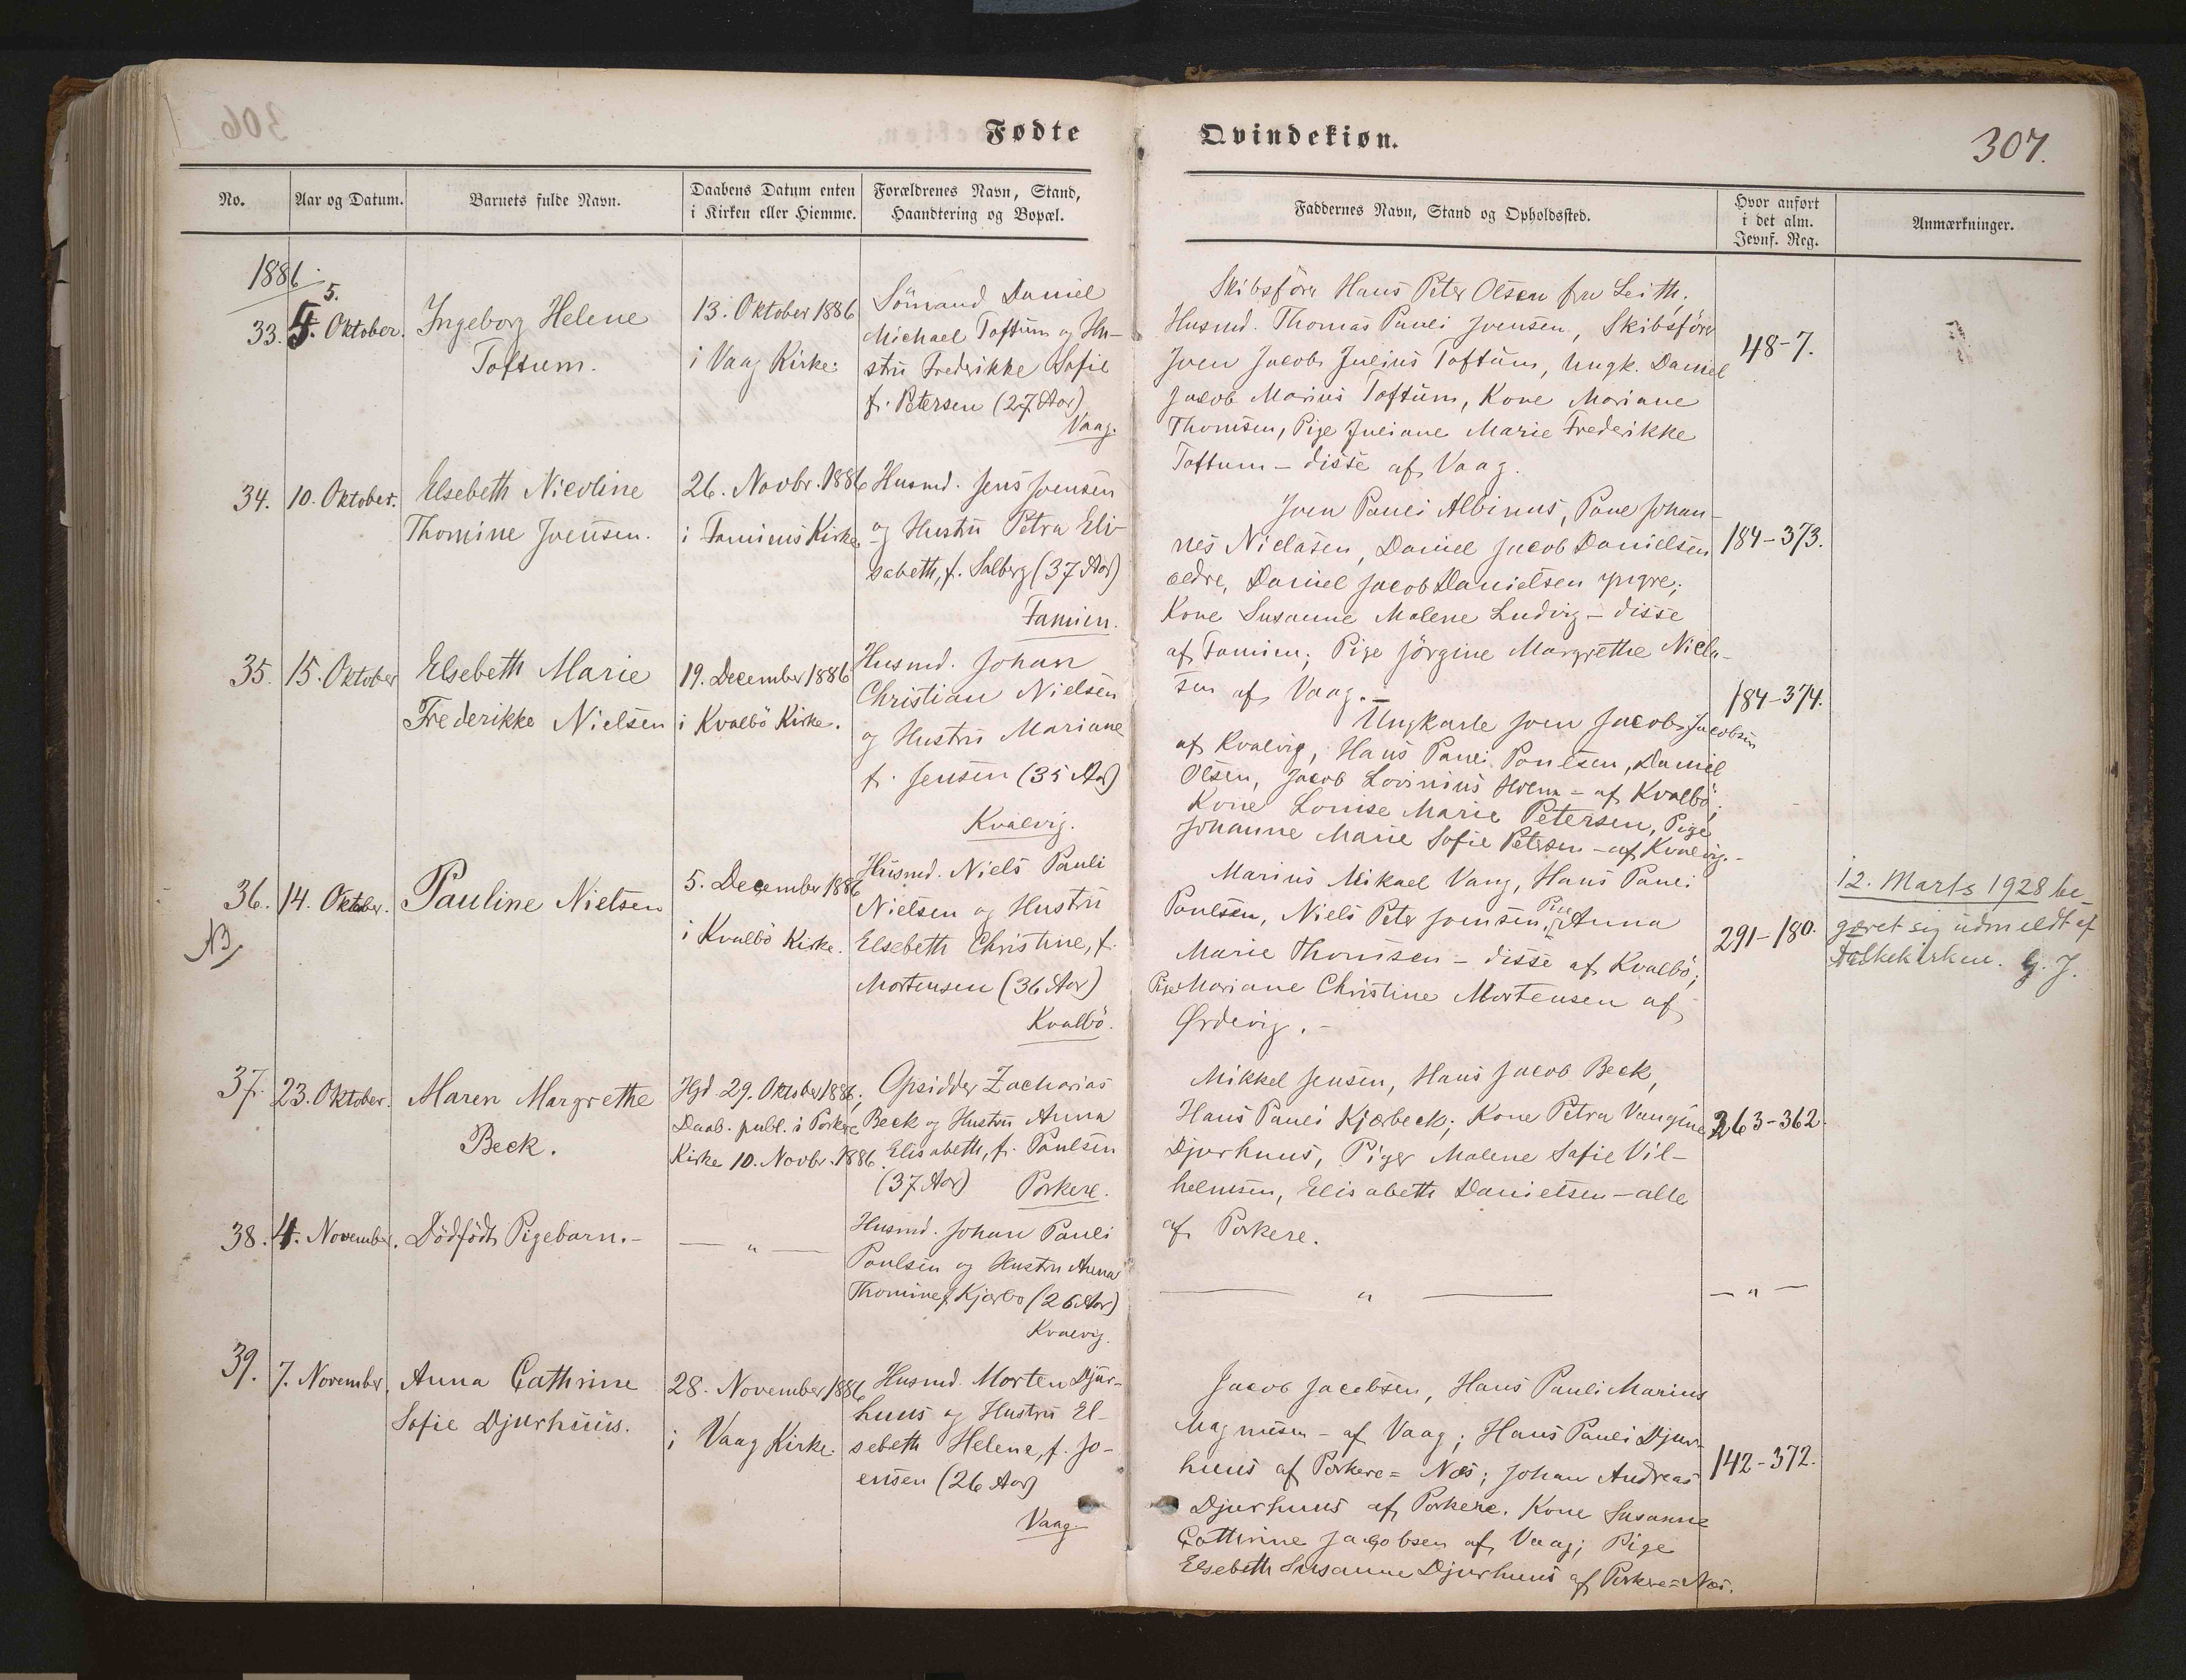 Fødte
Qvindekiøn.
307.
No.
Aar og Datum.
Barnets fulde Navn.
Daabens Datum enten
i Kirken eller Hiemme.
Forældrenes Navn, Stand,
Haandtering og Bopæl.
Faddernes Navn, Stand og Opholdssted.
Hvor anført
i det alm.
Jevnf. Reg.
Anmærkninger.
1886.
33.
5.
Oktober.
Ingeborg Helene
Toftum.
13. Oktober 1886
i Vaag Kirke.
Sömand Daniel
Michael Toftum og Hu-
stru Frederikke Sofie
f. Petersen (27 Aar)
Vaag.
Skibsförer Hans Peter Olsen fra Leith;
Husmd. Thomas Pauli Joensen, Skibsförer
Joen Jacob Julius Toftum, Ungk. Daniel
Jacob Marius Toftum, Kone Mariane
Thomsen, Pige Juliane Marie Frederikke
Toftum - disse af Vaag.
48-7.
34.
10. Oktober.
Elsebeth Nicoline
Thomine Joensen.
26. Novbr. 1886
i Famiens Kirke
Husmd. Jens Joensen
og Hustru Petra Eli-
sabeth, f. Salberg (37 Aar)
Famien.
Joen Pauli Albinus, Poul Johan-
nes Niclasen, Daniel Jacob Danielsen
ældre, Daniel Jacob Danielsen yngre;
Kone Susanne Malene Ludvig - disse
af Famien; Pige Jörgine Margrethe Nicla-
sen af Vaag.-
184-373.
35.
15. Oktober
Elsebeth Marie
Frederikke Nielsen
19. December 1886
i Kvalbö Kirke.
Husmd. Johan
Christian Nielsen
og Hustru Mariane
f. Jensen (35 Aar)
Kvalvig.
Ungkarle Joen Jacob Jacobsen
af Kvalvig, Hans Pauli Poulsen, Daniel
Olsen, Jacob Lovinius Holm - af Kvalbö;
Kone Louise Marie Petersen, Pige
Johanne Marie Sofie Petersen - af Kvalvig.-
184-374.
36.
NB
14. Oktober.
Pauline Nielsen
5. December 1886
i Kvalbö Kirke.
Husmd. Niels Pauli
Nielsen og Hustru
Elsebeth Christine, f.
Mortensen (36 Aar)
Kvalbö.
Marius Mikael Vang, Hans Pauli
Poulsen, Niels Peter Joensen, Pige Anna
Marie Thomsen - disse af Kvalbö;
Pige Mariane Christine Mortensen af
Ørdevig.-
291-180.
12. Marts 1928 be-
gæret sig udmeldt af
Folkekirken. G. J.
37.
23. Oktober.
Maren Margrethe
Beck.
Hjd 29. Oktober 1886;
Daab. publ. i Porkere
Kirke 10. Novbr. 1886.
Opsidder Zacharias
Beck og Hustru Anna
Elisabeth, f. Poulsen
(37 Aar)
Porkere.
Mikkel Jensen, Hans Jacob Beck,
Hans Pauli Kjærbeck; Kone Petra Vangine
Djurhuus, Piger Malene Sofie Vil-
helmsen, Elisabeth Danielsen - alle
af Porkere.
263-362.
38.
4. November.
Dödfödt Pigebarn.-
— " —
Husmd. Johan Pauli
Poulsen og Hustru Anna
Thomine f. Kjærbo (26 Aar)
Kvalvig.
— " —
— " —
39.
7. November.
Anna Cathrine
Sofie Djurhuus.
28. November 1886
i Vaag Kirke.
Husmd. Morten Djur-
huus og Hustru El-
sebeth Helene, f. Jo-
ensen (26 Aar)
Vaag
Jacob Jacobsen, Hans Pauli Marius
Magnusen - af Vaag; Hans Pauli Djur-
huus af Porkere= Næs; Johan Andreas
Djurhuus af Porkere. Kone Susanne
Cathrine Jacobsen af Vaag; Pige
Elsebeth Susanne Djurhuus af Porkere=Næs.
142-372.